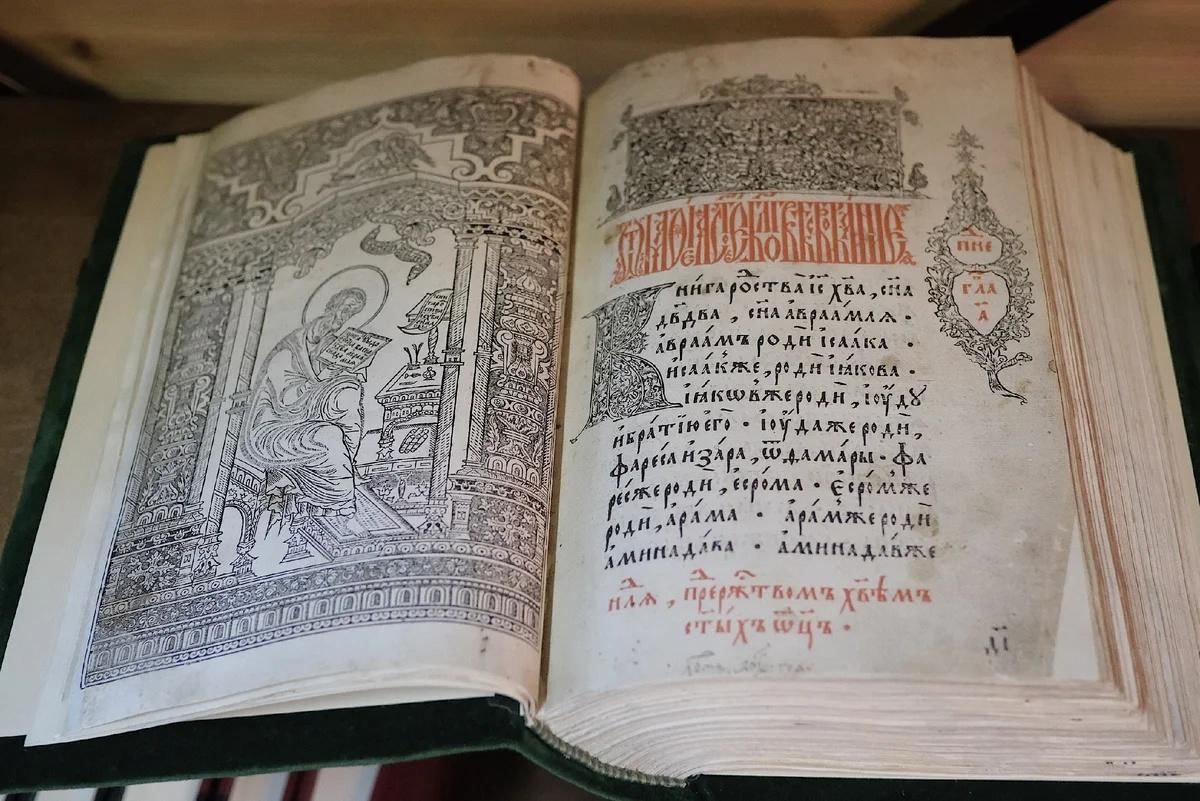 Ѿ маѳеꙗ ст҃ое бл҃говѣствованїе
Книга родства і҆с҃ х҃ва, сн҃а
дв҃два, сн҃а авраамля ·
авраамъ роди ісаака ·
исаакже, роди іакова ·
іакѡвжероди, іоуду
ибратїюего · іоуда же роди,
фареса изара, ѿ фамары · фа
ресже роди, есрома · Есромже
роди, арама · арамжероди
аминадава · аминадавже
ндл҃я, прережⷭ҇твомъ хв҃ѣмъ
ст҃ыхъ ѿц҃ъ ·
пне
гла
а҃